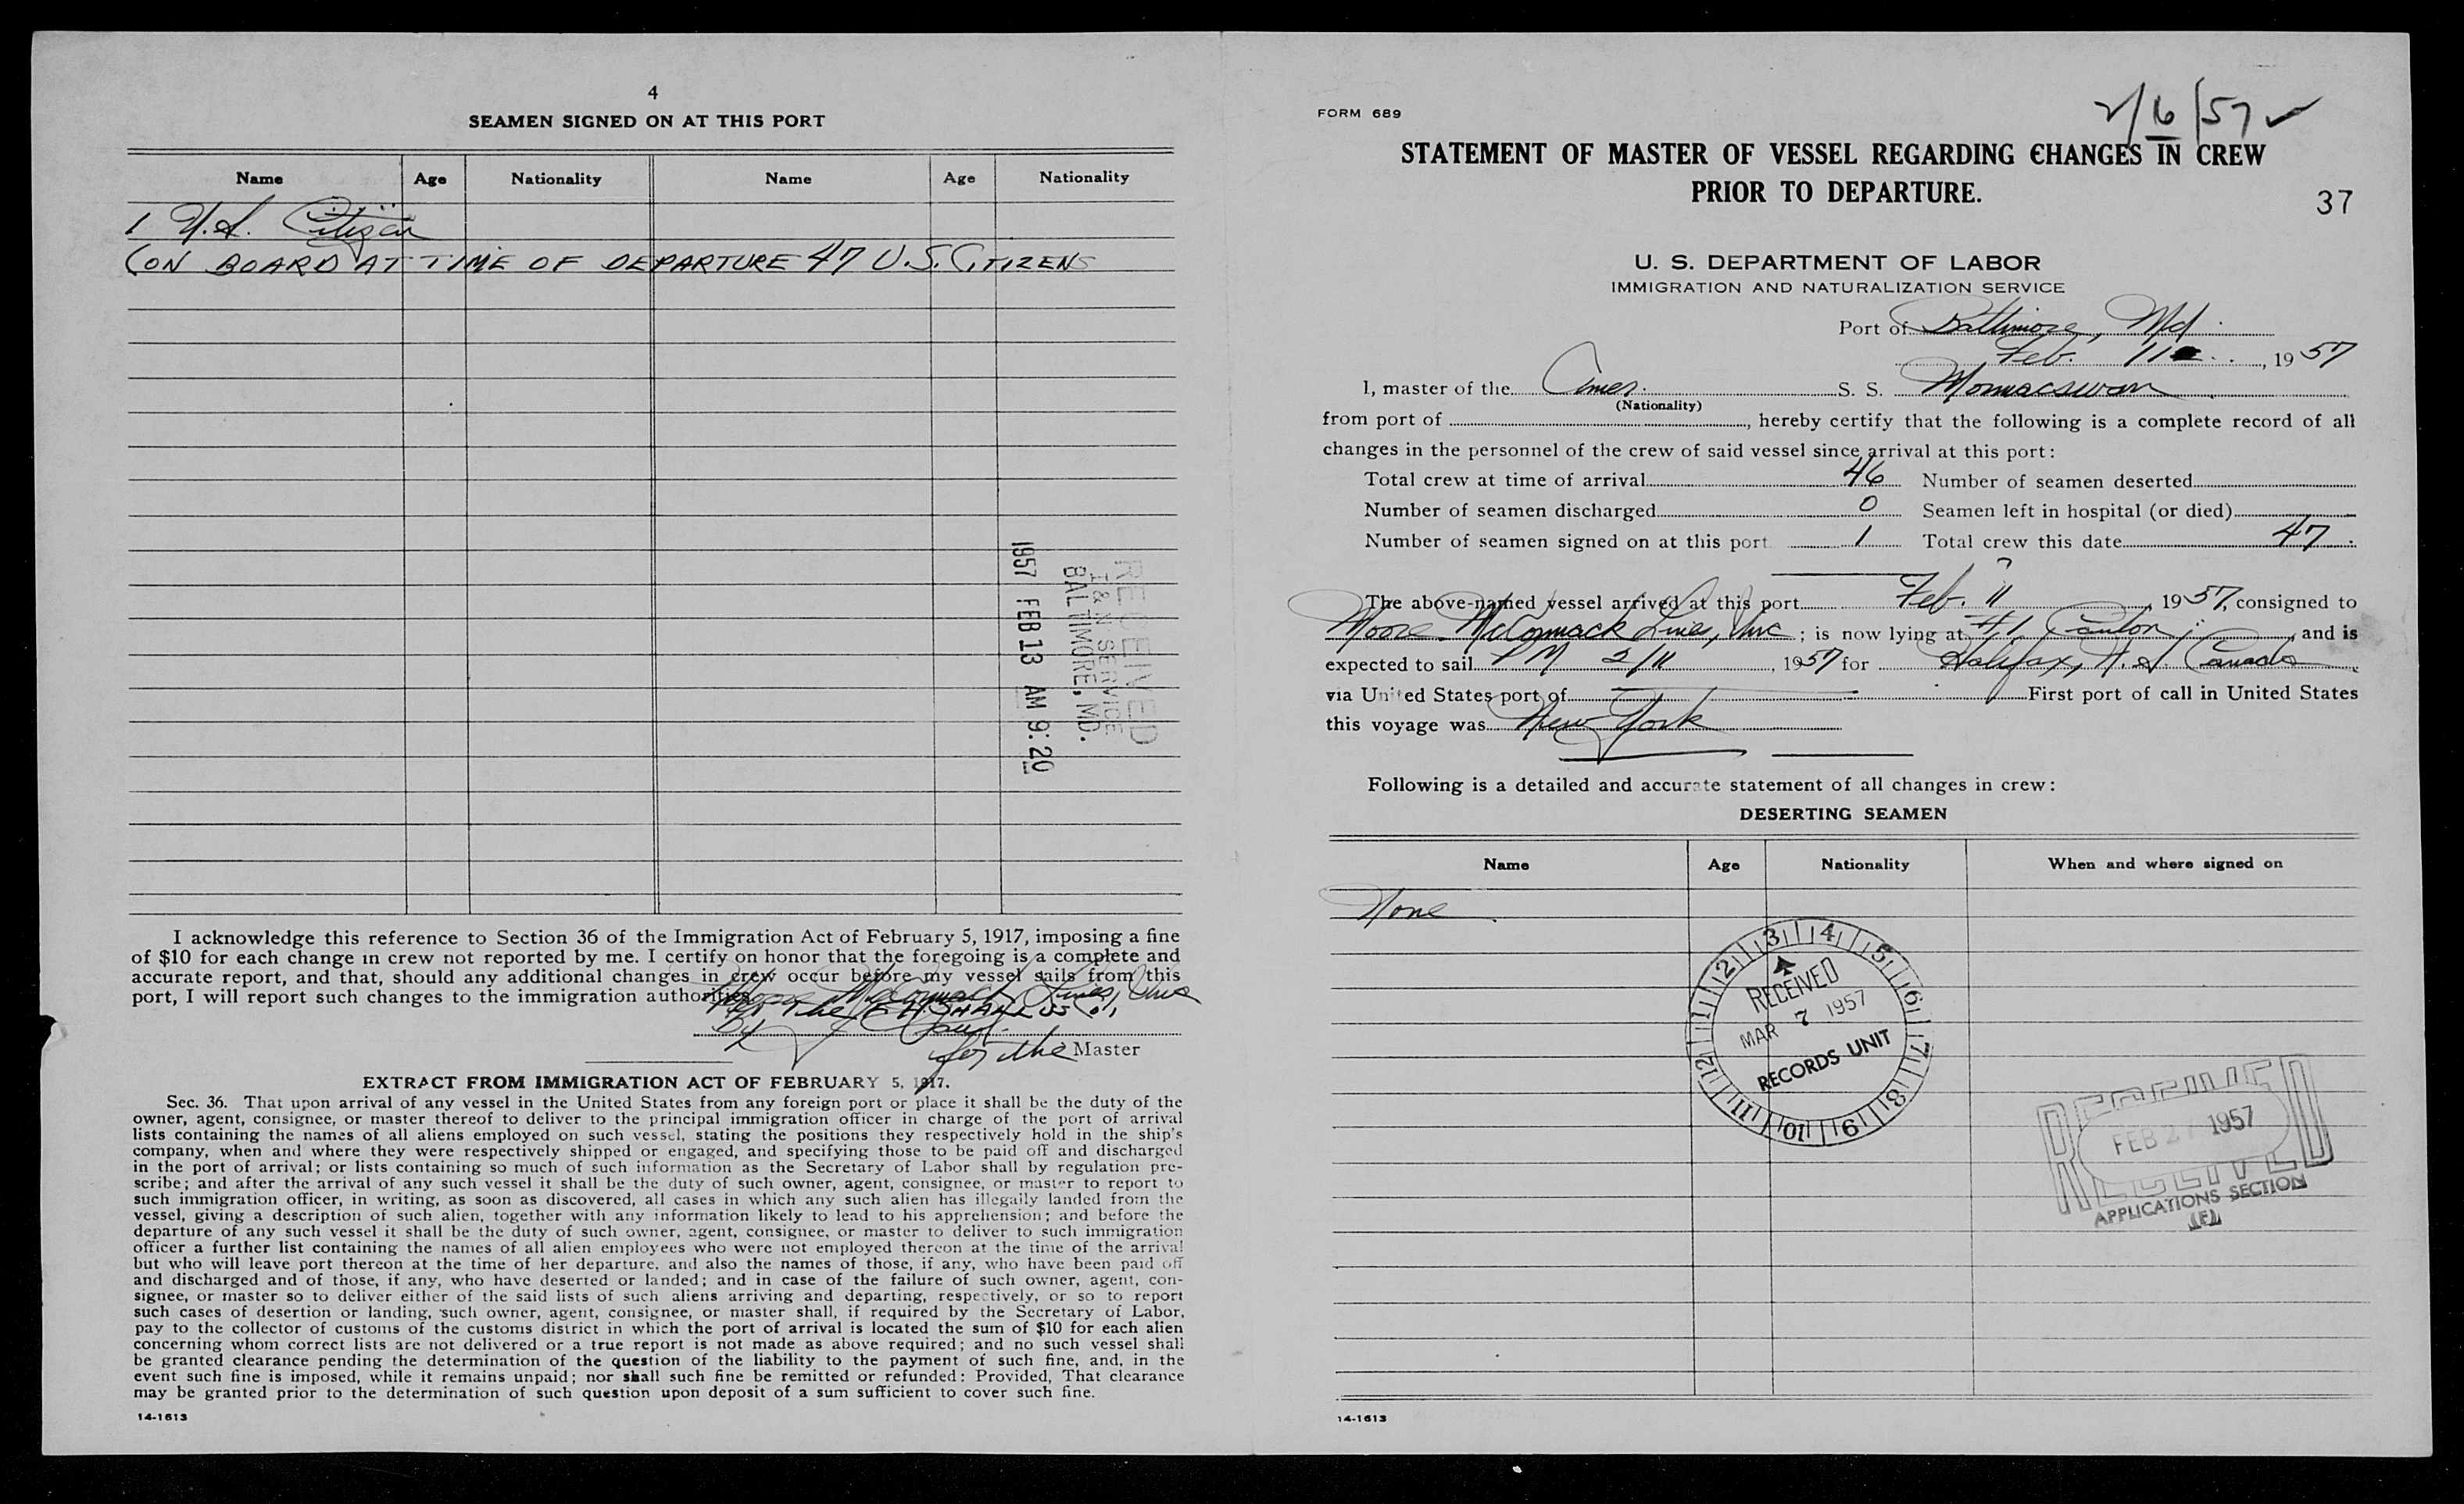 4
SEAMEN SIGNED ON AT THIS PORT
Name Age Nationality Name Age Nationality
1 U.S. Citizen
(ON BOARD AT TIME OF DEPARTURE 47 U.S. CITIZENS
RECEIVED
I & N SERVICE
BALTIMORE, MD.
1957 FEB 13 AM 9:20
I acknowledge this reference to Section 36 of the Immigration Act of February 5, 1917, imposing a fine
of $10 for each change in crew not reported by me. I certify on honor that the foregoing is a complete and
accurate report, and that, should any additional changes in crew occur before my vessel sails from this
port, I will report such changes to the immigration authorities.
Moore McCormack Lines, Inc
By
for the Master
EXTRACT FROM IMMIGRATION ACT OF FEBRUARY 5, 1917.
Sec. 36. That upon arrival of any vessel in the United States from any foreign port or place it shall be the duty of the
owner, agent, consignee, or master thereof to deliver to the principal immigration officer in charge of the port of arrival
lists containing the names of all aliens employed on such vessel, stating the positions they respectively hold in the ship's
company, when and where they were respectively shipped or engaged, and specifying those to be paid off and discharged
in the port of arrival; or lists containing so much of such information as the Secretary of Labor shall by regulation pre-
scribe; and after the arrival of any such vessel it shall be the duty of such owner, agent, consignee, or master to report to
such immigration officer, in writing, as soon as discovered, all cases in which any such alien has illegally landed from the
vessel, giving a description of such alien, together with any information likely to lead to his apprehension; and before the
departure of any such vessel it shall be the duty of such owner, agent, consignee, or master to deliver to such immigration
officer a further list containing the names of all alien employees who were not employed thereon at the time of the arrival
but who will leave port thereon at the time of her departure, and also the names of those, if any, who have been paid off
and discharged and of those, if any, who have deserted or landed; and in case of the failure of such owner, agent, con-
signee, or master so to deliver either of the said lists of such aliens arriving and departing, respectively, or so to report
such cases of desertion or landing, such owner, agent, consignee, or master shall, if required by the Secretary of Labor,
pay to the collector of customs of the customs district in which the port of arrival is located the sum of $10 for each alien
concerning whom correct lists are not delivered or a true report is not made as above required; and no such vessel shall
be granted clearance pending the determination of the question of the liability to the payment of such fine, and, in the
event such fine is imposed, while it remains unpaid; nor shall such fine be remitted or refunded: Provided, That clearance
may be granted prior to the determination of such question upon deposit of a sum sufficient to cover such fine.
14-1613
FORM 689
2/6/57 ✓
STATEMENT OF MASTER OF VESSEL REGARDING CHANGES IN CREW
PRIOR TO DEPARTURE.
37
U. S. DEPARTMENT OF LABOR
IMMIGRATION AND NATURALIZATION SERVICE
Port of Baltimore, Md.
Feb. 11, 1957
I, master of the Amer. S. S. Mormacswan
(Nationality)
from port of , hereby certify that the following is a complete record of all
changes in the personnel of the crew of said vessel since arrival at this port:
Total crew at time of arrival 46 Number of seamen deserted
Number of seamen discharged 0 Seamen left in hospital (or died)
Number of seamen signed on at this port 1 Total crew this date 47
The above-named vessel arrived at this port Feb. 11, 1957, consigned to
Moore-McCormack Lines, Inc ; is now lying at #1 Canton, and is
expected to sail PM 2/11, 1957 for Halifax, N.S. Canada
via United States port of First port of call in United States
this voyage was New York
Following is a detailed and accurate statement of all changes in crew:
DESERTING SEAMEN
Name Age Nationality When and where signed on
None
1 2 3 4 5 6 7 8 9 10 11 12
RECEIVED
MAR 7 1957
RECORDS UNIT
RECEIVED
FEB 2 1957
RECEIVED
APPLICATIONS SECTION
14-1613